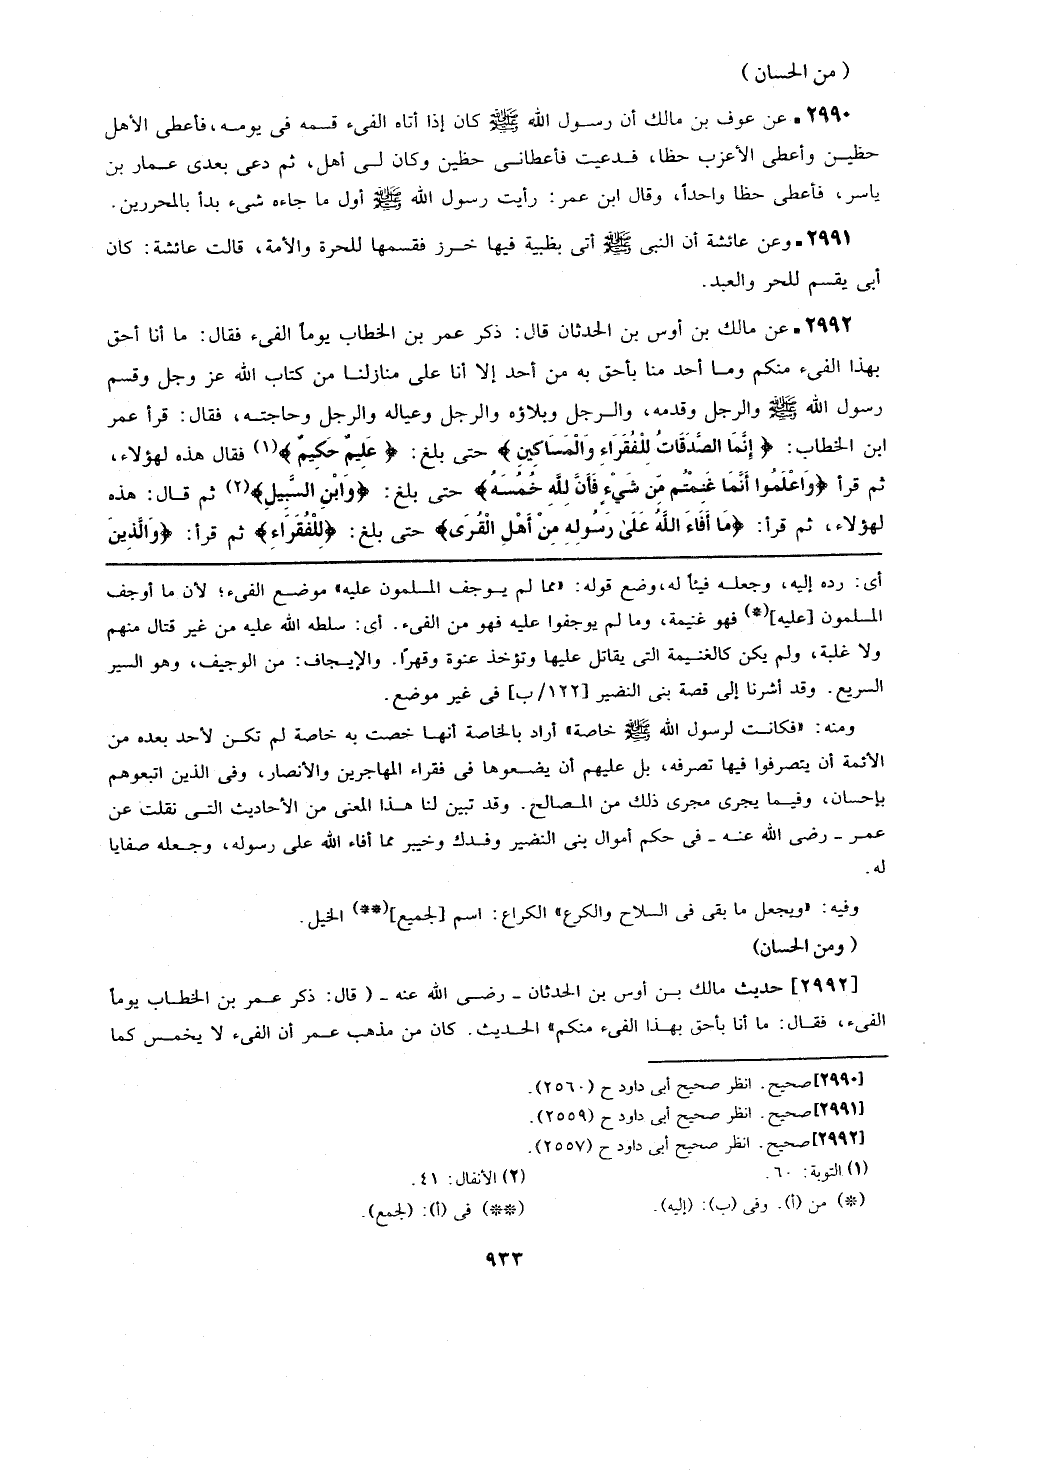 ( من الحسان )
٢٩٩٠ـ عن عوف بن مالك أن رسول الله ﷺ كان إذا أتاه الفىء قسمه فى يومه، فأعطى الأهل
حظين وأعطى الأعزب حظا، فدعيت فأعطانى حظين وكان لى أهل، ثم دعى بعدى عمار بن
ياسر، فأعطى حظا واحداً، وقال ابن عمر: رأيت رسول الله ﷺ أول ما جاءه شىء بدأ بالمحررين.
٢٩٩١ـ وعن عائشة أن النبى ﷺ أتى بظبية فيها خرز فقسمها للحرة والأمة، قالت عائشة: كان
أبى يقسم للحر والعبد.
٢٩٩٢ـ عن مالك بن أوس بن الحدثان قال: ذكر عمر بن الخطاب يوماً الفىء فقال: ما أنا أحق
بهذا الفىء منكم وما أحد منا بأحق به من أحد إلا أنا على منازلنا من كتاب الله عز وجل وقسم
رسول الله ﷺ والرجل وقدمه، والرجل وبلاؤه والرجل وعياله والرجل وحاجته، فقال: قرأ عمر
ابن الخطاب: ﴿ إِنَّمَا الصَّدَقَاتُ لِلْفُقَرَاءِ وَالْمَسَاكِينِ ﴾ حتى بلغ: ﴿ عَلِيمٌ حَكِيمٌ ﴾(١) فقال هذه لهؤلاء،
ثم قرأ ﴿وَاعْلَمُوا أَنَّمَا غَنِمْتُم مِّن شَيْءٍ فَأَنَّ لِلَّهِ خُمُسَهُ﴾ حتى بلغ: ﴿وَابْنِ السَّبِيلِ﴾(٢) ثم قال: هذه
لهؤلاء، ثم قرأ: ﴿مَا أَفَاءَ اللَّهُ عَلَىٰ رَسُولِهِ مِنْ أَهْلِ الْقُرَى﴾ حتى بلغ: ﴿لِلْفُقَرَاءِ﴾ ثم قرأ: ﴿وَالَّذِينَ
أى: رده إليه، وجعله فيئاً له، وضع قوله: «مما لم يوجف المسلمون عليه» موضع الفىء؛ لأن ما أوجف
المسلمون [عليه](*) فهو غنيمة، وما لم يوجفوا عليه فهو من الفىء. أى: سلطه الله عليه من غير قتال منهم
ولا غلبة، ولم يكن كالغنيمة التى يقاتل عليها وتؤخذ عنوة وقهرًا. والإيجاف: من الوجيف، وهو السير
السريع. وقد أشرنا إلى قصة بنى النضير [١٢٢/ب] فى غير موضع.
ومنه: «فكانت لرسول الله ﷺ خاصة» أراد بالخاصة أنها خصت به خاصة لم تكن لأحد بعده من
الأئمة أن يتصرفوا فيها تصرفه، بل عليهم أن يضعوها فى فقراء المهاجرين والأنصار، وفى الذين اتبعوهم
بإحسان، وفيما يجرى مجرى ذلك من المصالح. وقد تبين لنا هذا المعنى من الأحاديث التى نقلت عن
عمر ـ رضى الله عنه ـ فى حكم أموال بنى النضير وفدك وخيبر مما أفاء الله على رسوله، وجعله صفايا
له.
وفيه: «ويجعل ما بقى فى السلاح والكرع» الكراع: اسم [لجميع](**) الخيل.
( ومن الحسان)
[٢٩٩٢] حديث مالك بن أوس بن الحدثان ـ رضى الله عنه ـ ( قال: ذكر عمر بن الخطاب يوماً
الفىء، فقال: ما أنا بأحق بهذا الفىء منكم» الحديث. كان من مذهب عمر أن الفىء لا يخمس كما
[٢٩٩٠] صحيح. انظر صحيح أبى داود ح (٢٥٦٠).
[٢٩٩١] صحيح. انظر صحيح أبى داود ح (٢٥٥٩).
[٢٩٩٢] صحيح. انظر صحيح أبى داود ح (٢٥٥٧).
(١) التوبة: ٦٠. (٢) الأنفال: ٤١.
(*) من (أ). وفى (ب): (إليه). (**) فى (أ): (لجمع).
٩٣٣